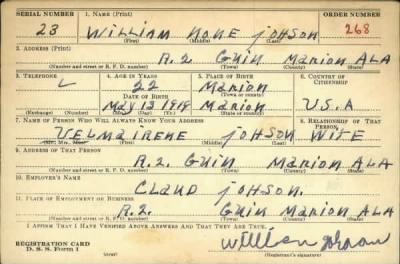 SERIAL NUMBER 1. NAME (Print) ORDER NUMBER
23 WILLIAM NONE JOHSON 268
(First) (Middle) (Last)
2. ADDRESS (Print)
R.2 GUIN MARION ALA
(Number and street or R. F. D. number) (Town) (County) (State)
3. TELEPHONE 4. AGE IN YEARS 5. PLACE OF BIRTH 6. COUNTRY OF CITIZENSHIP
22 MARION
DATE OF BIRTH (Town or county)
MAY 13 1919 MARION U.S.A
(Exchange) (Number) (Mo.) (Day) (Yr.) (State or country)
7. NAME OF PERSON WHO WILL ALWAYS KNOW YOUR ADDRESS 8. RELATIONSHIP OF THAT PERSON
VELMA IRENE JOHSON WIFE
(First) (Middle) (Last)
9. ADDRESS OF THAT PERSON
R.2. GUIN MARION ALA
(Number and street or R. F. D. number) (Town) (County) (State)
10. EMPLOYER'S NAME
CLAUD JOHSON.
11. PLACE OF EMPLOYMENT OR BUSINESS
R.2. GUIN MARION ALA
(Number and street or R. F. D. number) (Town) (County) (State)
I AFFIRM THAT I HAVE VERIFIED ABOVE ANSWERS AND THAT THEY ARE TRUE.
REGISTRATION CARD
D. S. S. Form 1 (over) (Registrant's signature)